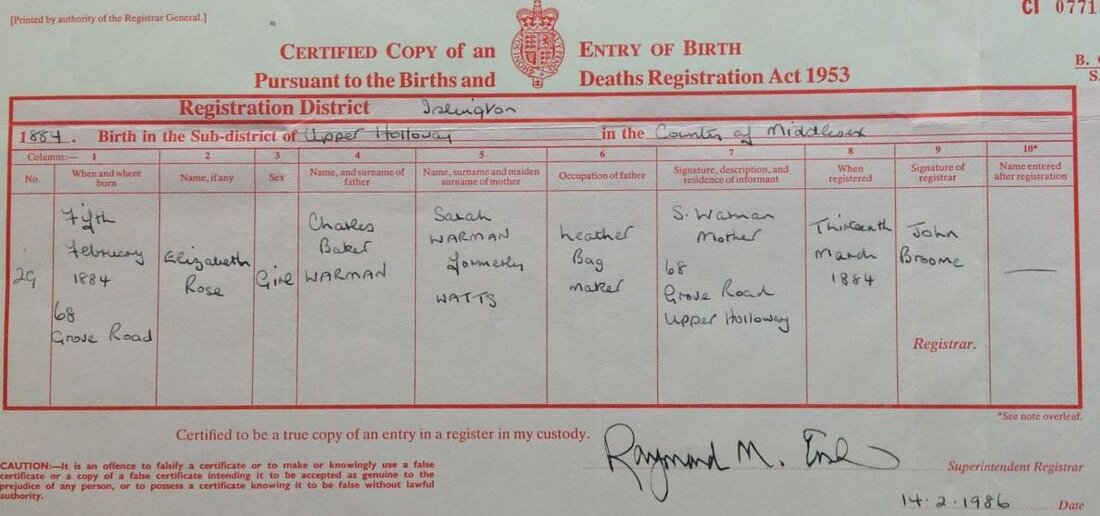 [Printed by authority of the Registrar General.]
CI 0771
CERTIFIED COPY OF AN ENTRY OF BIRTH
Pursuant to the Births and Deaths Registration Act 1953
B. C
S.
Registration District Islington
1884. Birth in the Sub-district of Upper Holloway in the County of Middlesex
Columns:— 1 2 3 4 5 6 7 8 9 10*
No. When and where born Name, if any Sex Name, and surname of father Name, surname and maiden surname of mother Occupation of father Signature, description, and residence of informant When registered Signature of registrar Name entered after registration
29
Fifth
February
1884
68
Grove Road
Elizabeth
Rose
Girl
Charles
Baker
WARMAN
Sarah
WARMAN
formerly
WATTS
Leather
Bag
maker
S. Warman
Mother
68
Grove Road
Upper Holloway
Thirteenth
March
1884
John
Broome
Registrar.
*See note overleaf.
Certified to be a true copy of an entry in a register in my custody.
Raymond M.
Superintendent Registrar
CAUTION:—It is an offence to falsify a certificate or to make or knowingly use a false
certificate or a copy of a false certificate intending it to be accepted as genuine to the
prejudice of any person, or to possess a certificate knowing it to be false without lawful
authority.
14.2.1986 Date